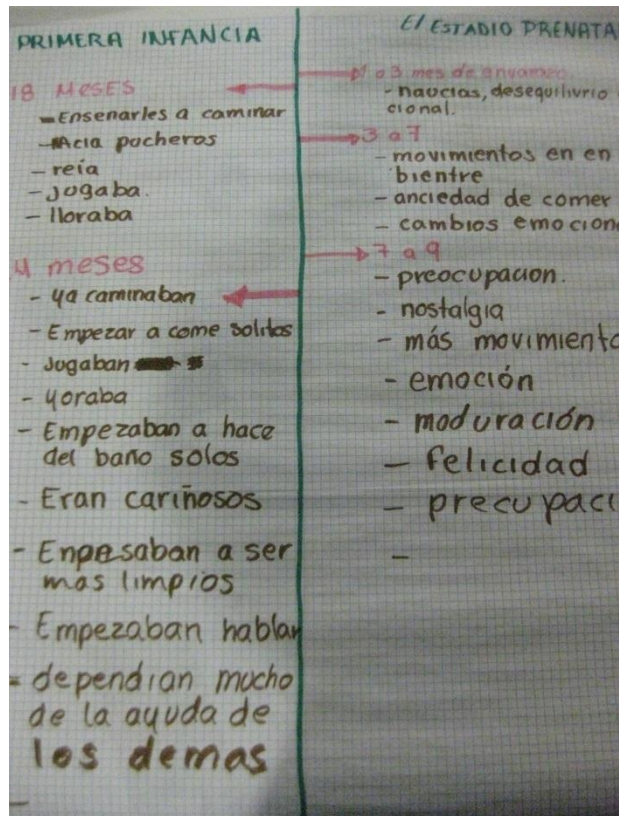 PRIMERA INFANCIA
18 MESES
- Ensenarles a caminar
- Acia pucheros
- reía
- Jugaba.
- lloraba
4 meses
- ya caminaban
- Empezar a come solitos
- Jugaban
- yoraba
- Empezaban a hace
del baño solos
- Eran cariñosos
- Enpesaban a ser
mas limpios
- Empezaban hablar
- dependian mucho
de la ayuda de
los demas
-
El ESTADIO PRENATA
o 3 mes de
- naucias, desequilivrio
cional.
3 a 7
- movimientos en en
bientre
- anciedad de comer
- cambios emocion
7 a 9
- preocupacion.
- nostalgia
- más movimiento
- emoción
- moduración
- felicidad
- precupaci
-